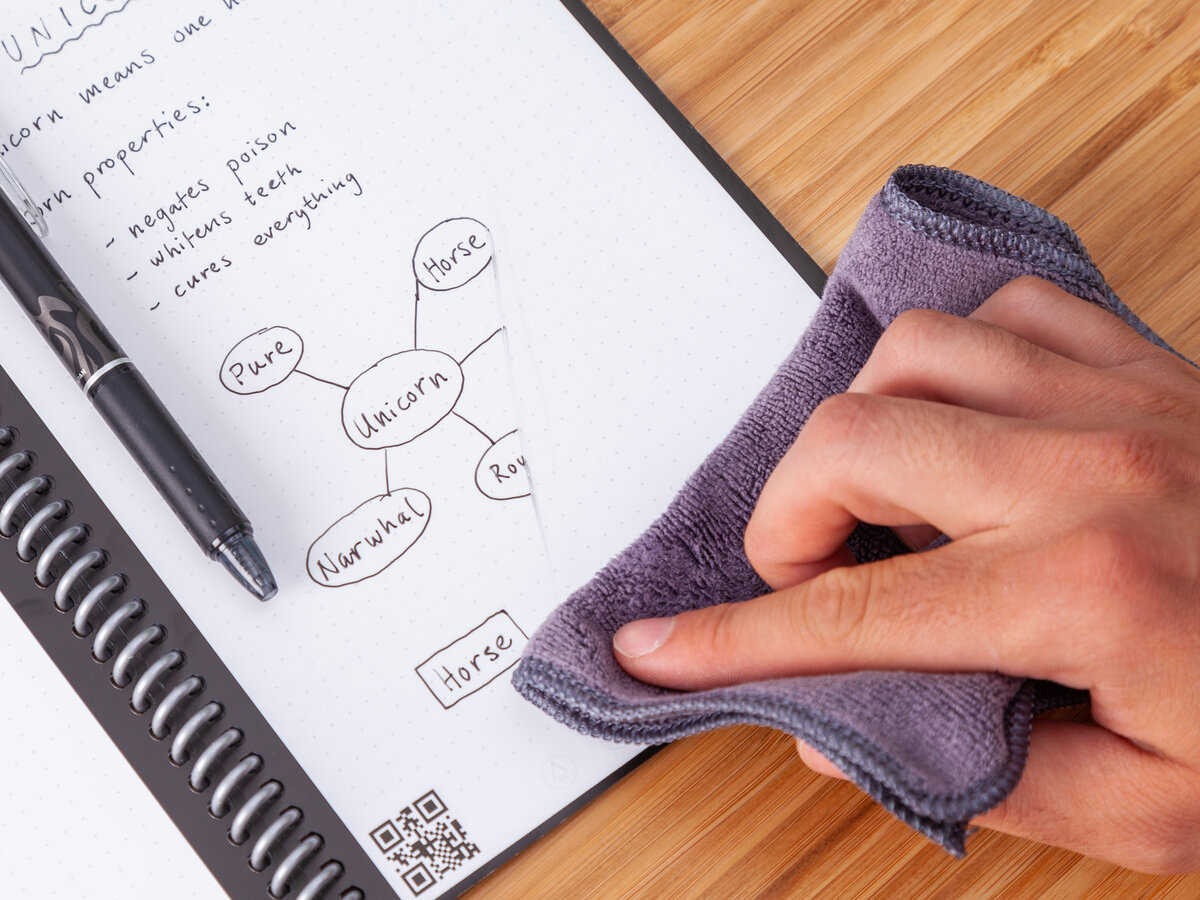 UNIC
means one
properties:
- negates poison
- whitens teeth
- cures everything
Horse
Pure
Unicorn
Narwhal
Horse